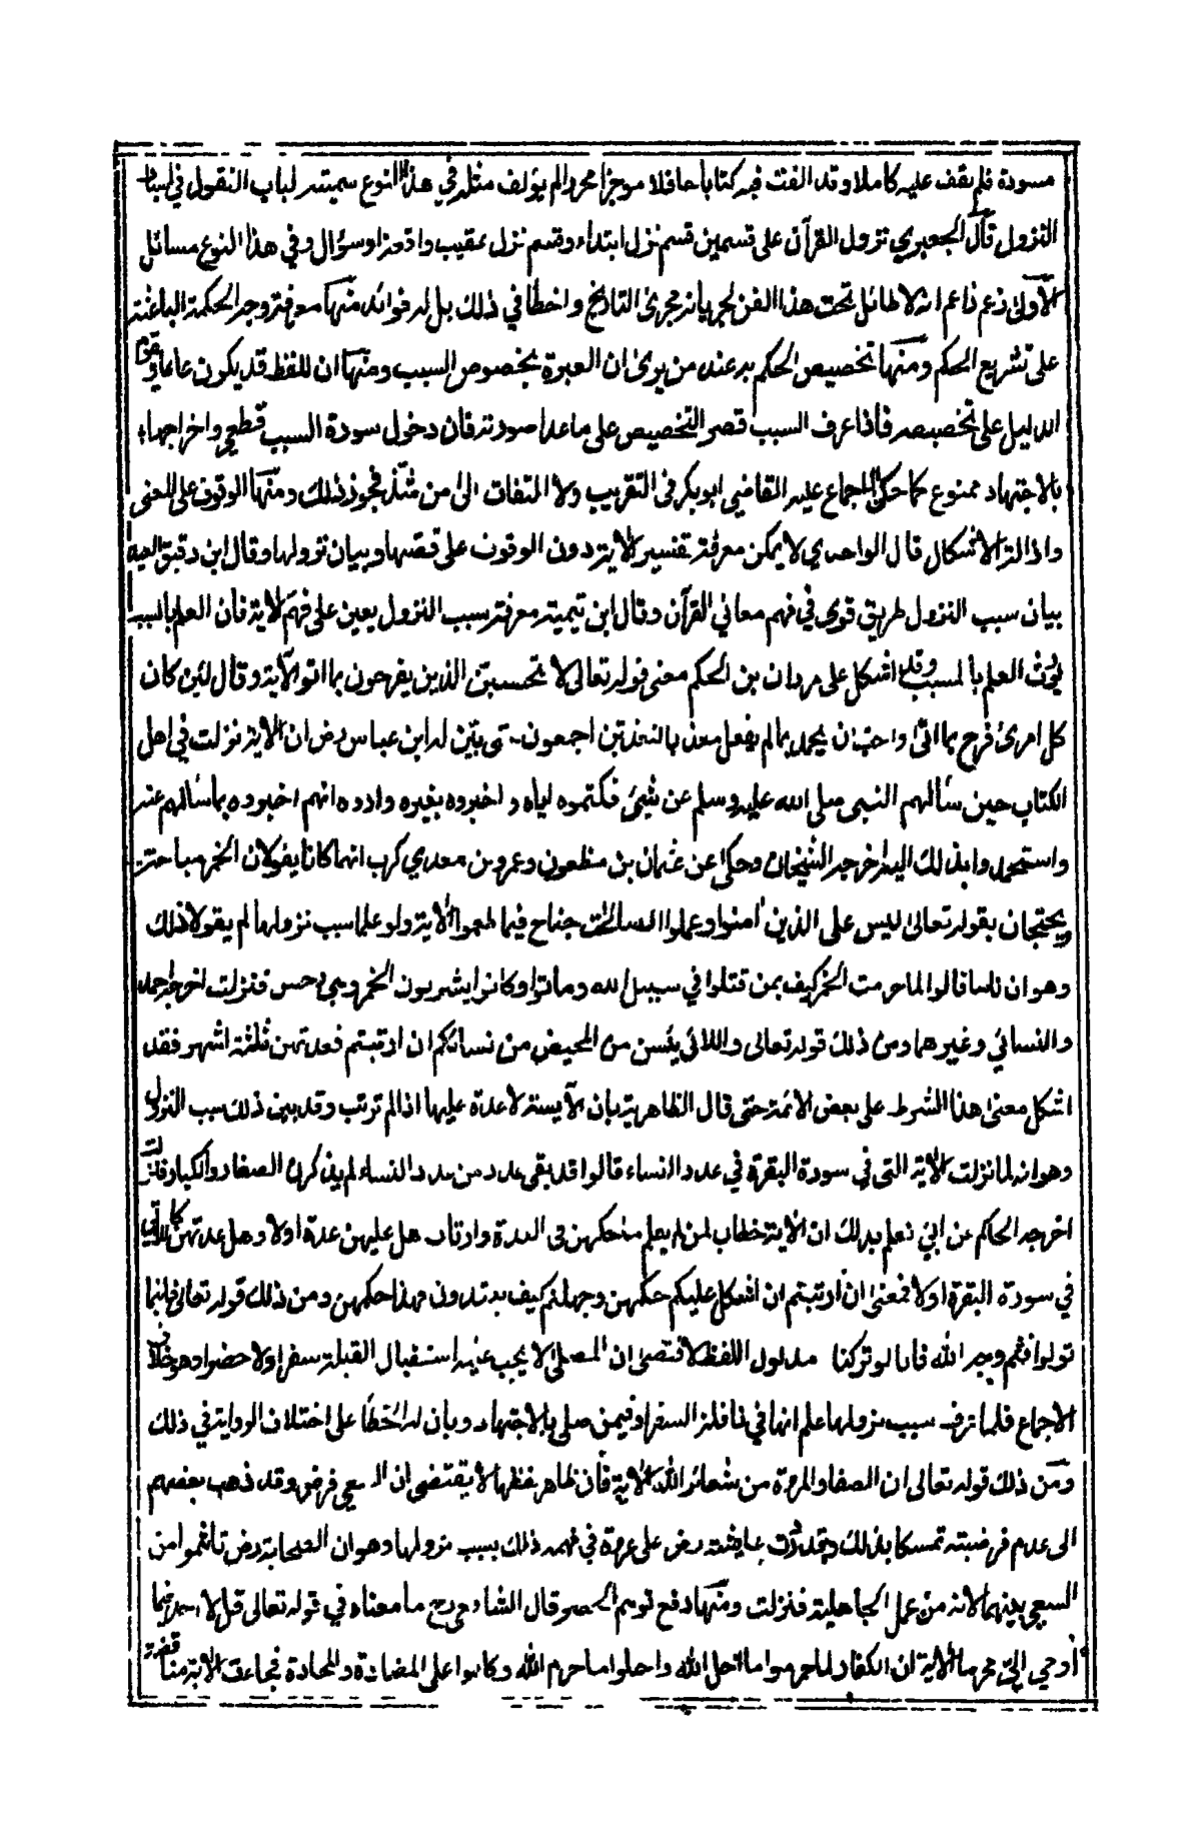 مسودة فلم يقف عليه كاملا وقد الفت فيه كتابا حافلا موجزا محررا لم يؤلف مثله في هذا النوع سميته لباب النقول في اسباب
النزول قال الجعبري نزول القرآن على قسمين قسم نزل ابتداء وقسم نزل عقيب واقعة او سؤال وفي هذا النوع مسائل
الاولى زعم زاعم انه لا طائل تحت هذا الفن لجريانه مجرى التاريخ واخطأ في ذلك بل له فوائد منها معرفة وجه الحكمة الباعثة
على تشريع الحكم ومنها تخصيص الحكم به عند من يرى ان العبرة بخصوص السبب ومنها ان اللفظ قد يكون عاما ويقوم
الدليل على تخصيصه فاذا عرف السبب قصر التخصيص على ما عدا صورته فان دخول سورة السبب قطعي واخراجها
بالاجتهاد ممنوع كما حكى الاجماع عليه القاضي ابو بكر فى التقريب ولا التفات الى من شذ فجوز ذلك ومنها الوقوف على المعنى
وازالة الاشكال قال الواحدي لا يمكن معرفة تفسير الاية دون الوقوف على قصتها وبيان نزولها وقال ابن دقيق العيد
بيان سبب النزول طريق قوى في فهم معاني القرآن وقال ابن تيمية معرفة سبب النزول يعين على فهم الاية فان العلم بالسبب
يورث العلم بالمسبب وقد اشكل على مروان بن الحكم معنى قوله تعالى لا تحسبن الذين يفرحون بما اتوا الآية وقال لئن كان
كل امرئ فرح بما اتى واحب ان يحمد بما لم يفعل معذبا لنعذبن اجمعون حتى بين له ابن عباس رض ان الاية نزلت في اهل
الكتاب حين سألهم النبى صلى الله عليه وسلم عن شيئ فكتموه اياه و اخبروه بغيره واروه انهم اخبروه بما سألهم عنه
واستحمدوا بذلك اليه اخرجه الشيخان وحكى عن عثمان بن مظعون وعمرو بن معدي كرب انهما كانا يقولان الخمر مباحة
ويحتجان بقوله تعالى ليس على الذين امنوا وعملوا الصالحات جناح فيما طعموا الاية ولو علما سبب نزولها لم يقولا ذلك
وهو ان ناسا قالوا لما حرمت الخمر كيف بمن قتلوا في سبيل الله وماتوا وكانوا يشربون الخمر وهي رجس فنزلت اخرجه احمد
والنسائي وغيرهما ومن ذلك قوله تعالى واللائى يئسن من المحيض من نسائكم ان ارتبتم فعدتهن ثلثة اشهر فقد
اشكل معنى هذا الشرط على بعض الائمة حتى قال الظاهرية بان الآيسة لا عدة عليها اذا لم ترتب وقد بين ذلك سبب النزول
وهو انه لما نزلت الاية التى في سورة البقرة في عدد النساء قالوا قد بقى عدد من عدد النساء لم يذكرن الصغار والكبار فنزلت
اخرجه الحاكم عن ابي فعلم بذلك ان الاية خطاب لمن لم يعلم ما حكمهن فى العدة وارتاب هل عليهن عدة او لا وهل عدتهن كاللاتي
في سورة البقرة او لا فمعنى ان ارتبتم ان اشكل عليكم حكمهن وجهلتم كيف يعتدون فهذا حكمهن ومن ذلك قوله تعالى فاينما
تولوا فثم وجه الله فانا لو تركنا مدلول اللفظ لاقتضى ان المصلى لا يجب عليه استقبال القبلة سفرا ولا حضرا وهو خلاف
الاجماع فلما عرف سبب نزولها علم انها في نافلة السفر او فيمن صلى بالاجتهاد وبان له الخطأ على اختلاف الرواية في ذلك
ومن ذلك قوله تعالى ان الصفا والمروة من شعائر الله الاية فان ظاهر لفظها لا يقتضى ان السعي فرض وقد ذهب بعضهم
الى عدم فرضيته تمسكا بذلك وقد ردت عايشة رض على عروة في فهمه ذلك بسبب نزولها وهو ان الصحابة رض تاثموا من
السعي بينهما لانه من عمل الجاهلية فنزلت ومنها دفع توهم الحصر قال الشافعي رح ما معناه في قوله تعالى قل لا اجد فيما
أوحي الى محرما الاية ان الكفار لما حرموا ما احل الله واحلوا ما حرم الله وكانوا على المضادة والمحادة فجاءت الاية مناقضة